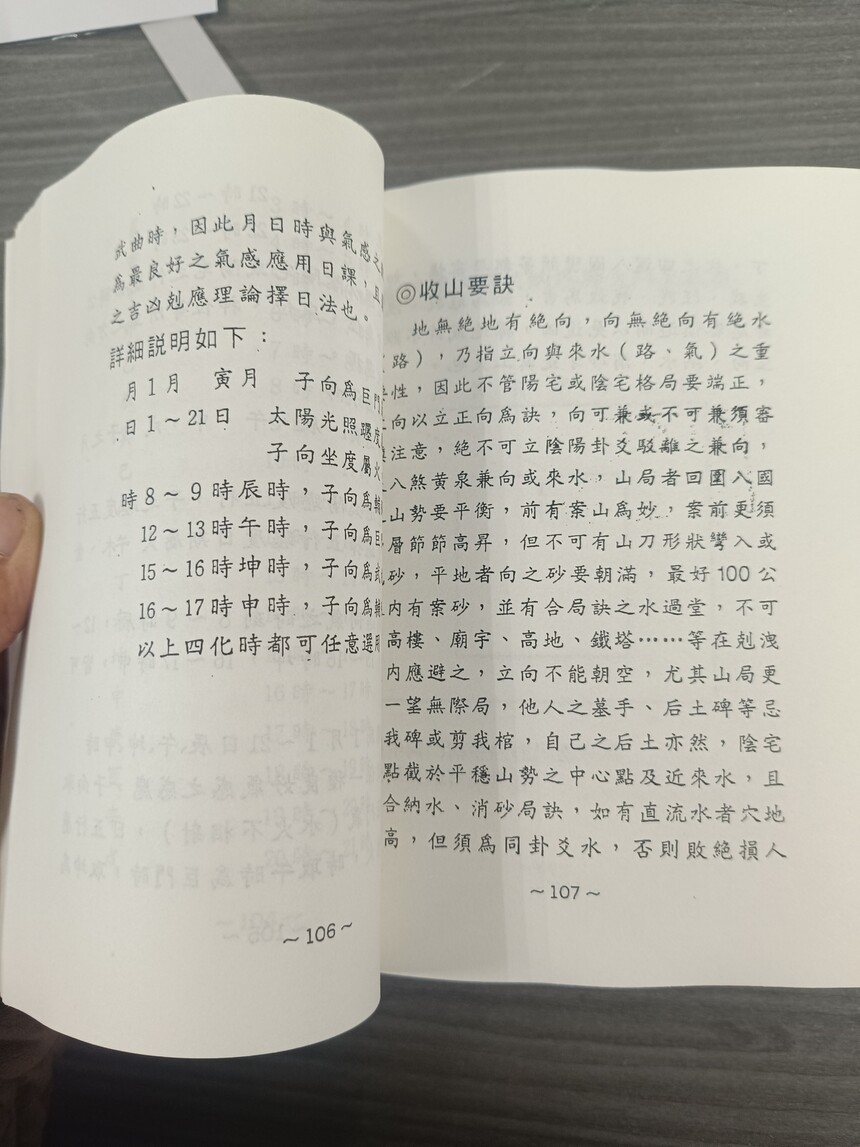 武曲時，因此月日時與氣感之
為最良好之氣感應用日課，且
之吉凶剋應理論擇日法也。
詳細説明如下：
月 1月 寅月 子向為巨門
日 1～21日 太陽光照躔度
子向坐度屬火
時 8～9時辰時，子向為輔
12～13時午時，子向為巨
15～16時坤時，子向為武
16～17時申時，子向為輔
以上四化時都可任意選用
～106～
◎收山要訣
地無絕地有絕向，向無絕向有絕水
（路），乃指立向與來水（路、氣）之重
性，因此不管陽宅或陰宅格局要端正，
向以立正向為訣，向可兼或不可兼須審
注意，絕不可立陰陽卦爻駁離之兼向，
八煞黃泉兼向或來水，山局者回圍八國
山勢要平衡，前有案山為妙，案前更須
層節節高昇，但不可有山刀形狀彎入或
砂，平地者向之砂要朝滿，最好100公
內有案砂，並有合局訣之水過堂，不可
高樓、廟宇、高地、鐵塔……等在剋洩
內應避之，立向不能朝空，尤其山局更
一望無際局，他人之墓手、后土碑等忌
我碑或剪我棺，自己之后土亦然，陰宅
點截於平穩山勢之中心點及近來水，且
合納水、消砂局訣，如有直流水者穴地
高，但須為同卦爻水，否則敗絕損人
～107～